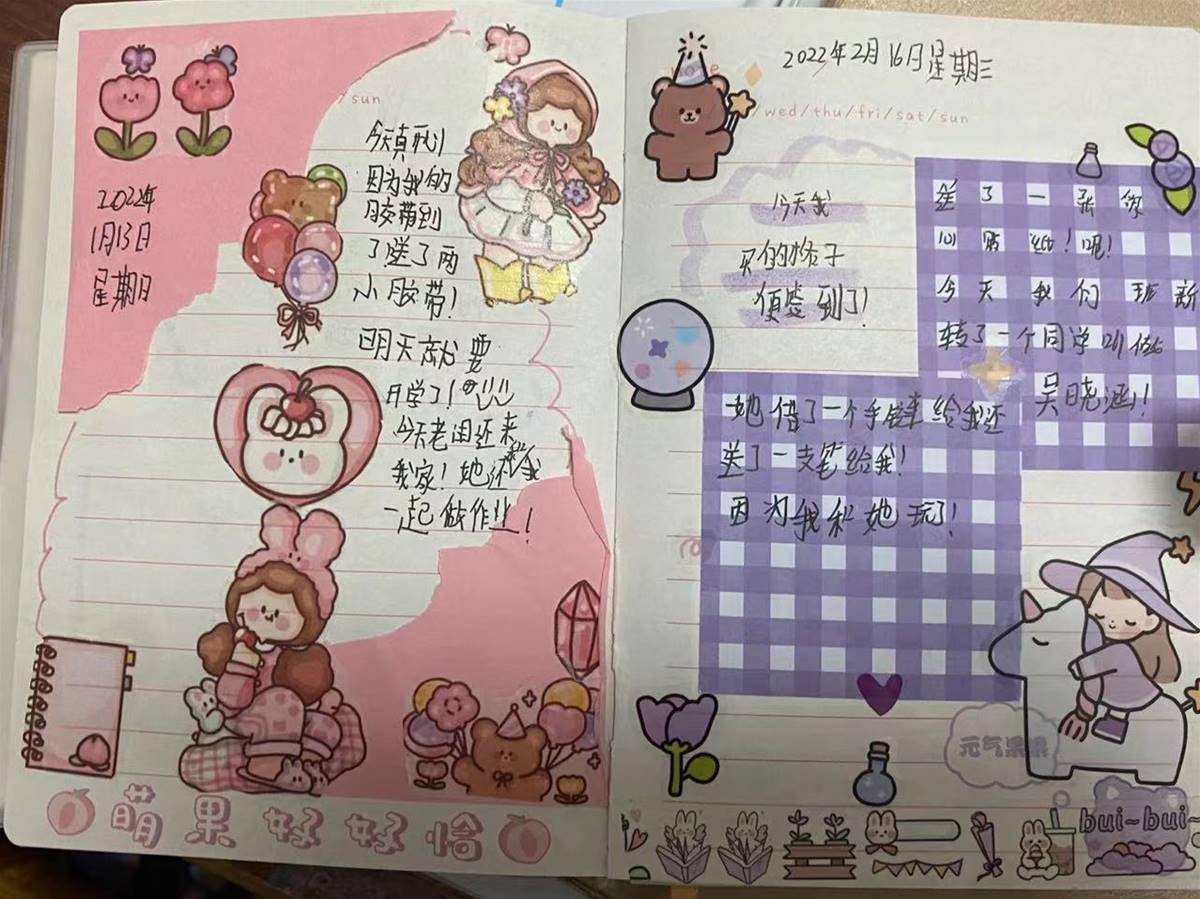 /sun
2022年
1月13日
星期日
今天真开心
因为我的
胶带到
了送了两
小胶带！
明天就要
开学了！
今天老闺还来
我家！她还和我
一起做作业！
萌果好好恰
2022年2月16日星期三
/wed/thu/fri/sat/sun
今天我
买的格子
便签到了！
送了一张
心贴纸！呢！
今天我们班新
转了一个同学叫
吴晓涵！
她借了一个手链给我还
送了一支笔给我！
因为我和她玩了！
元气果果
bui~bui~